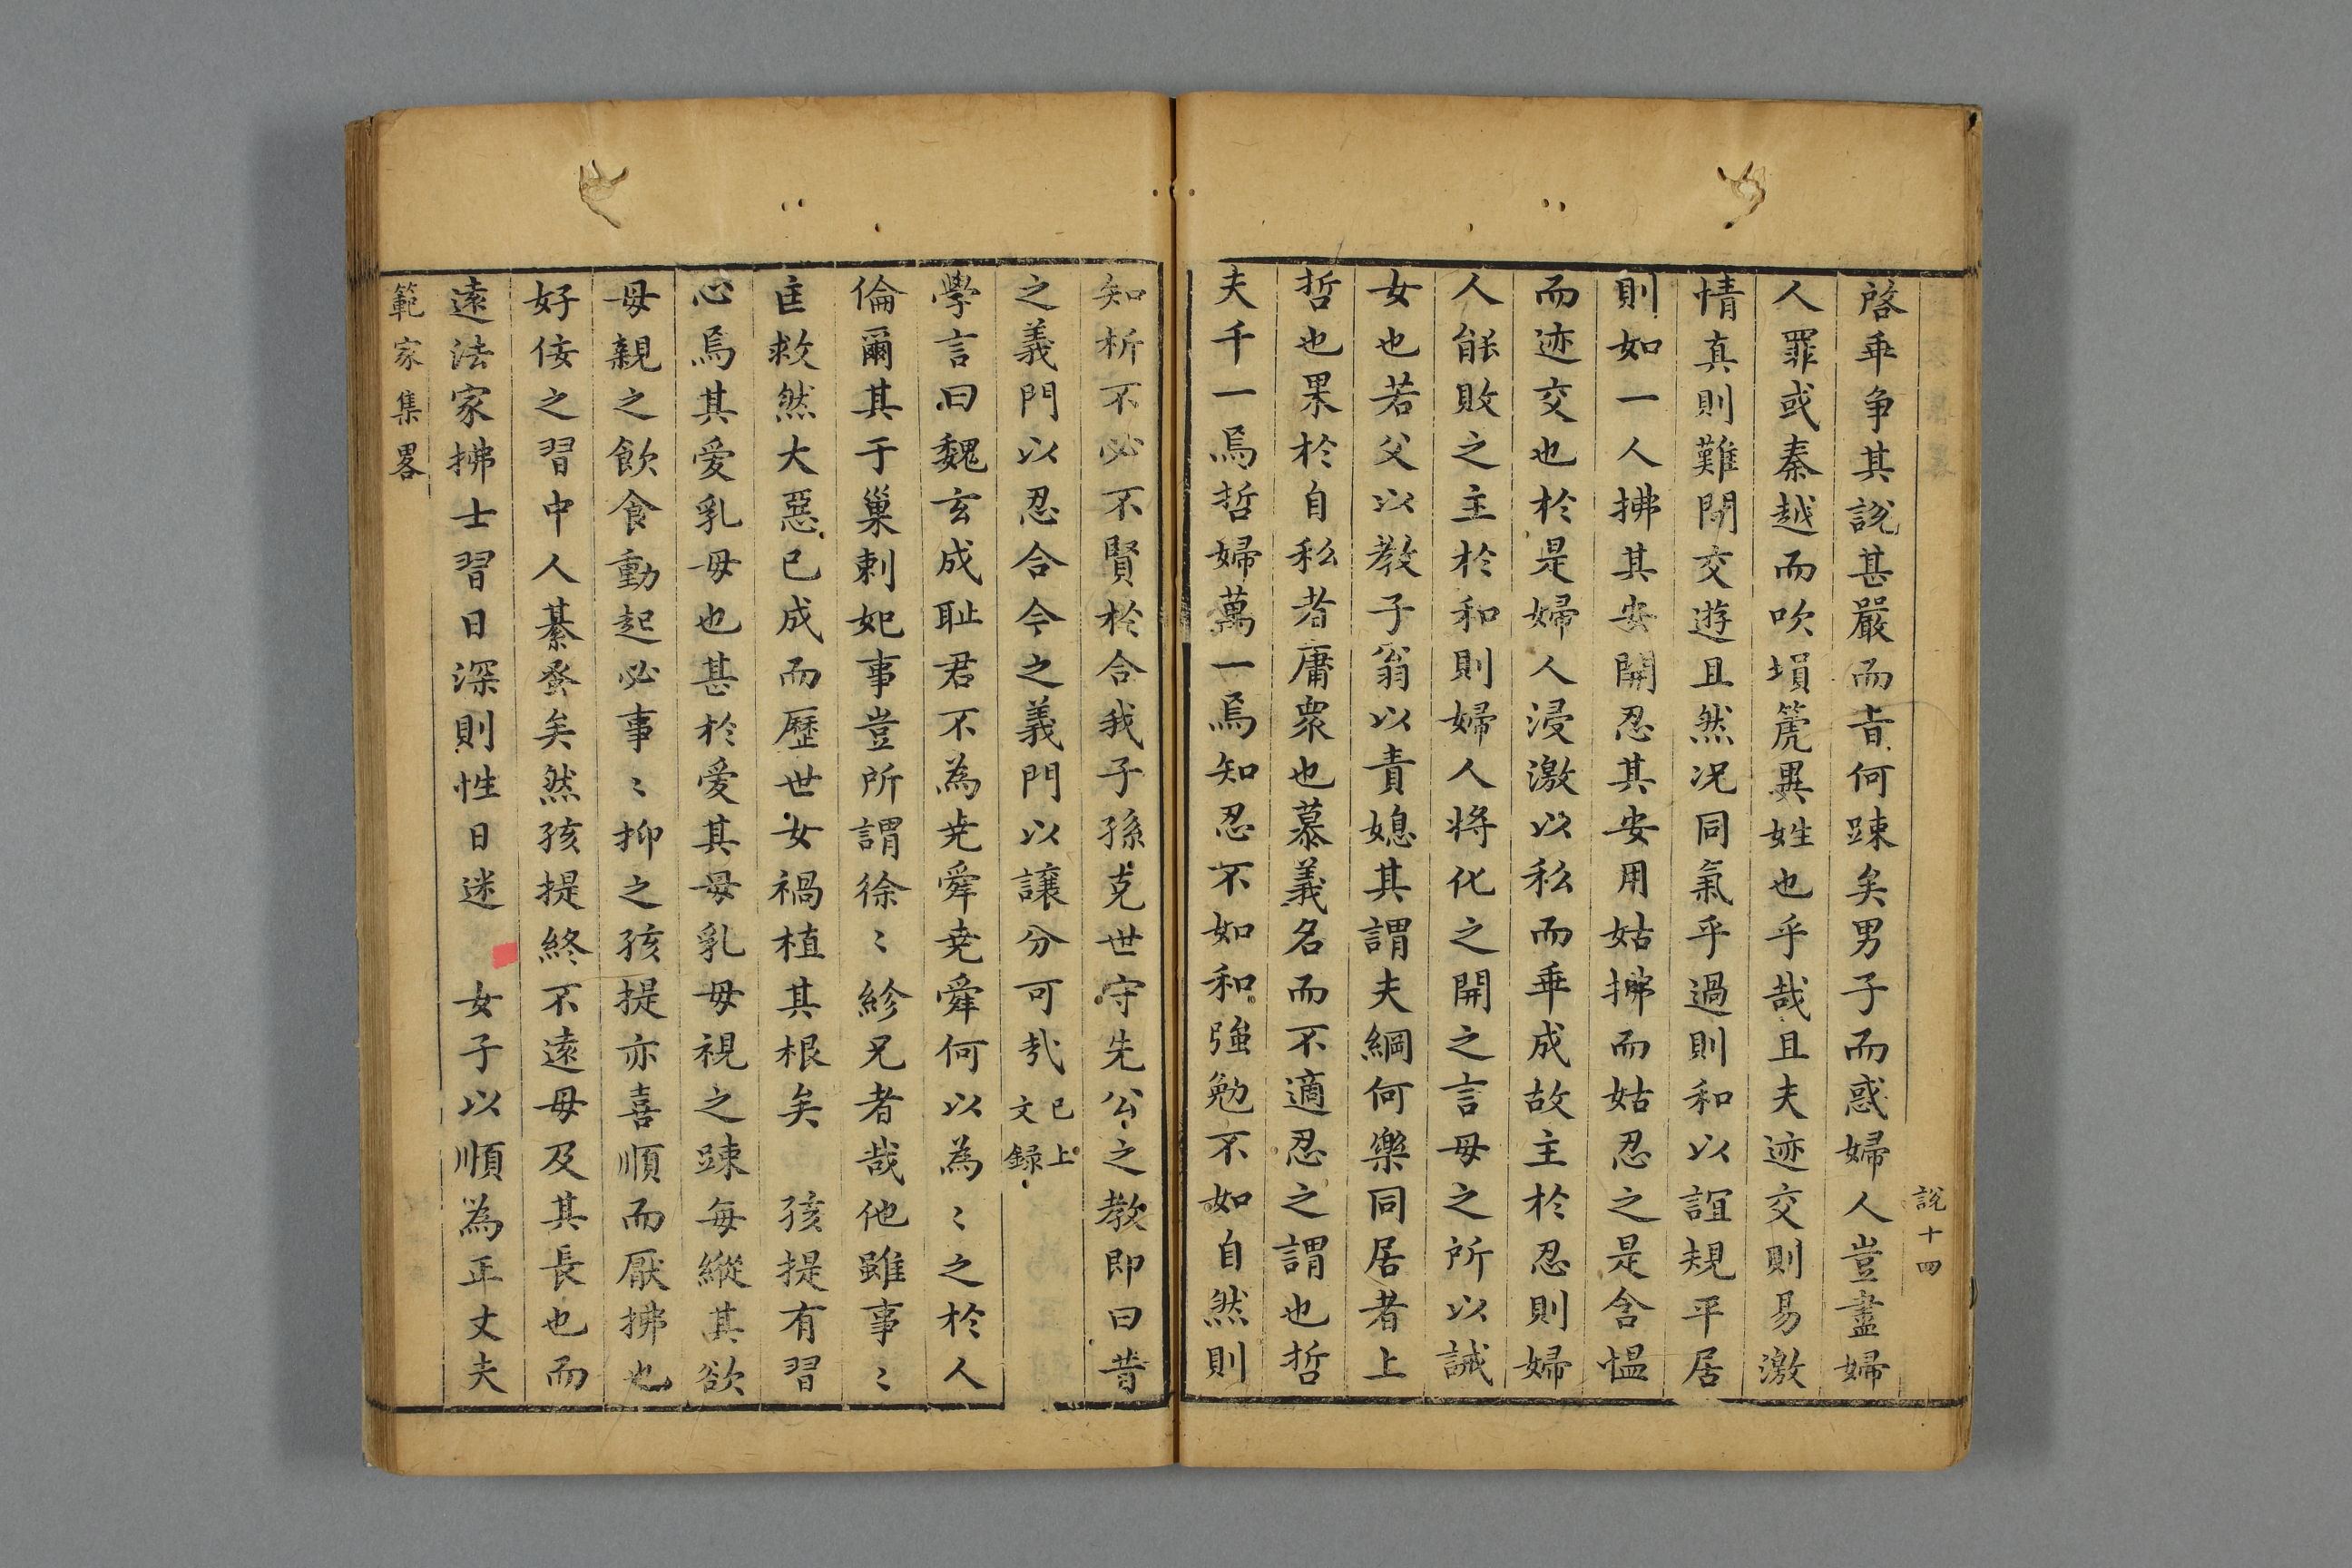 說十四
啓乖争其說甚嚴而㫖何踈矣男子而惑婦人豈盡婦
人罪或秦越而吹塤箎異姓也乎哉且夫迹交則易激
情真則難閒交遊且然况同氣乎過則和以誼規平居
則如一人拂其安開忍其安用姑拂而姑忍之是含愠
而迹交也於是婦人浸激以私而乖成故主於忍則婦
人能敗之主於和則婦人将化之開之言毋之所以誡
女也若父以教子翁以責媳其謂夫綱何樂同居者上
哲也果於自私者庸衆也慕義名而不適忍之謂也哲
夫千一焉哲婦萬一焉知忍不如和強勉不如自然則
知析不必不賢於合我子孫克世守先公之教即曰昔
之義門以忍合今之義門以讓分可㢤已上文録
學言曰魏玄成耻君不為尭舜尭舜何以為〻之於人
倫爾其于巢剌妃事豈所謂徐〻紾兄者哉他雖事〻
匡救然大惡已成而歷世女禍植其根矣 孩提有習
心焉其愛乳母也甚於愛其母乳母視之踈每縱其欲
母親之飲食動起必事〻抑之孩提亦喜順而厭拂也
好佞之習中人綦蚤矣然孩提終不遠母及其長也而
遠法家拂士習日深則性日迷 女子以順為正丈夫
範家集畧